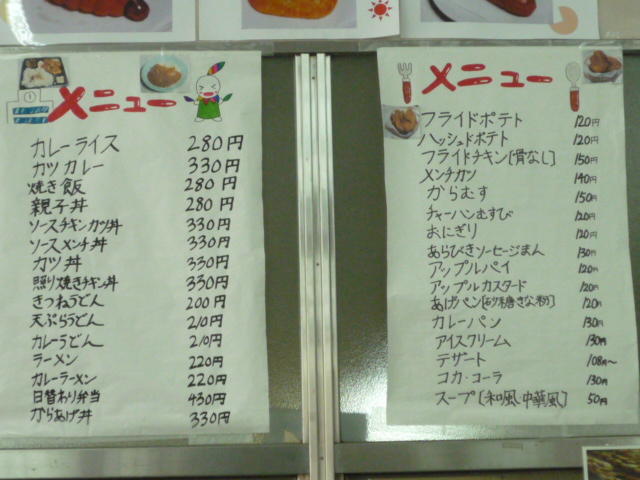 メニュー
カレーライス 280円
カツカレー 330円
焼き飯 280円
親子丼 280円
ソースチキンカツ丼 330円
ソースメンチ丼 330円
カツ丼 330円
照り焼きチキン丼 330円
きつねうどん 200円
天ぷらうどん 210円
カレーうどん 210円
ラーメン 220円
カレーラーメン 220円
日替わり弁当 430円
からあげ丼 330円
メニュー
フライドポテト 120円
ハッシュドポテト 120円
フライドチキン[骨なし] 150円
メンチカツ 140円
からむす 150円
チャーハンむすび 120円
おにぎり 120円
あらびきソーセージまん 130円
アップルパイ 120円
アップルカスタード 120円
あげパン[砂糖きな粉] 120円
カレーパン 130円
アイスクリーム 130円
デザート 108円〜
コカ・コーラ 130円
スープ[和風・中華風] 50円